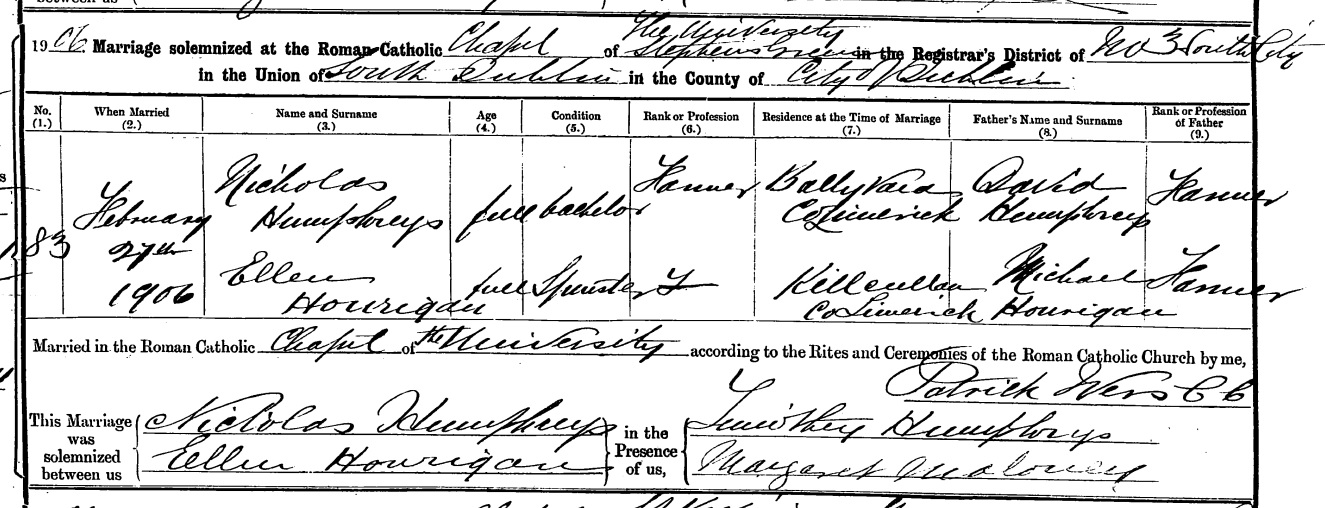 1906. Marriage solemnized at the Roman Catholic Chapel of The University Stephens Green in the Registrar's District of No 3 South City
in the Union of South Dublin in the County of City of Dublin
No. (1.) When Married (2.) Name and Surname (3.) Age (4.) Condition (5.) Rank or Profession (6.) Residence at the Time of Marriage (7.) Father's Name and Surname (8.) Rank or Profession of Father (9.)
83 February 27th 1906
Nicholas Humphreys full bachelor Farmer Co Limerick David Humphreys Farmer
Ellen Hourigan full Spinster Co Limerick Michael Hourigan Farmer
Married in the Roman Catholic Chapel of the University according to the Rites and Ceremonies of the Roman Catholic Church by me,
Patrick C C
This Marriage was solemnized between us
Nicholas Humphreys
Ellen Hourigan
in the Presence of us,
Timothy Humphrys
Margaret Maloney